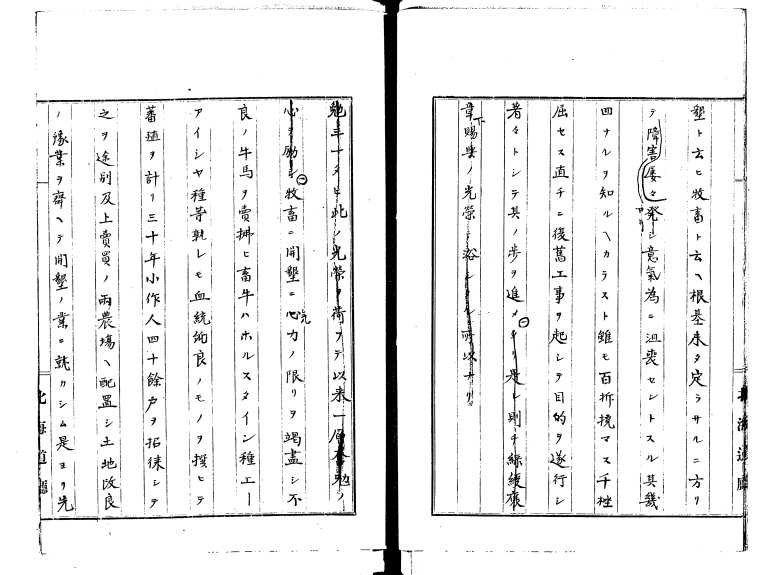 墾ト云ヒ牧畜ト云ヘ根基未タ定ラサルニ方リ
テ障害屡々発シ意氣為ニ沮喪セントスル其幾
回ナルヲ知ルヘカラスト雖モ百折撓マス千挫
屈セス直チニ復舊工事ヲ起シテ目的ヲ遂行シ
著々トシテ其ノ歩ヲ進メタリ是レ則チ緑綬褒
章下賜ノ光榮ニ浴シタル所以ナリ
此ノ光榮ヲ荷フテ以来一層
心ヲ励シ牧畜ニ開墾ニ心力ノ限リヲ竭盡シ不
良ノ牛馬ヲ賣拂ヒ畜牛ハホルスタイン種エー
アイシヤ種等孰レモ血統純良ノモノヲ撰ヒテ
蕃殖ヲ計リ三十年小作人四十餘戸ヲ招徠シテ
之ヲ途別及上賣買ノ両農場ヘ配置シ土地改良
ノ豫業ヲ齊ヘテ開墾ノ業ニ就カシム是ヨリ先
北海道廳
北海道廳